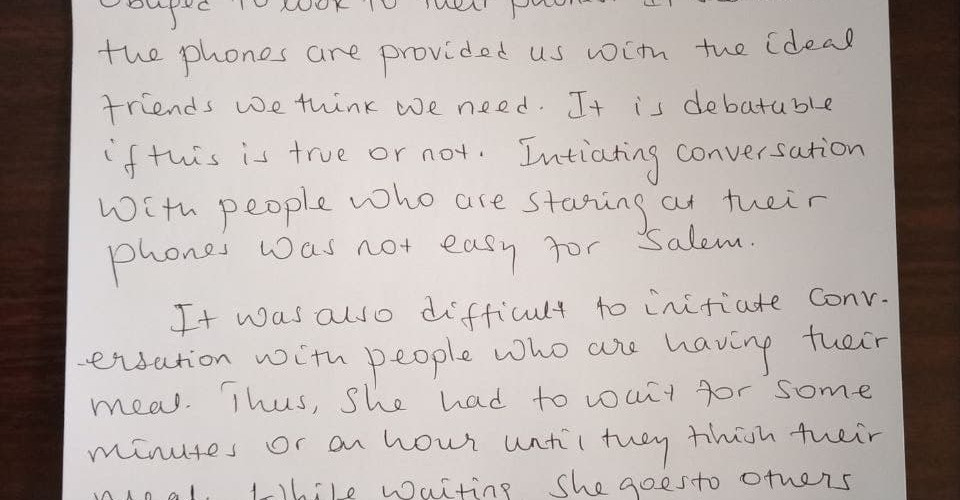 to look to their
the phones are provided us with the ideal
friends we think we need. It is debatable
if this is true or not. Intiating conversation
with people who are staring at their
phones was not easy for Salem.
It was also difficult to initiate conv-
-ersation with people who are having their
meal. Thus, she had to wait for some
minutes or an hour until they finish their
meal. While waiting she goes to others